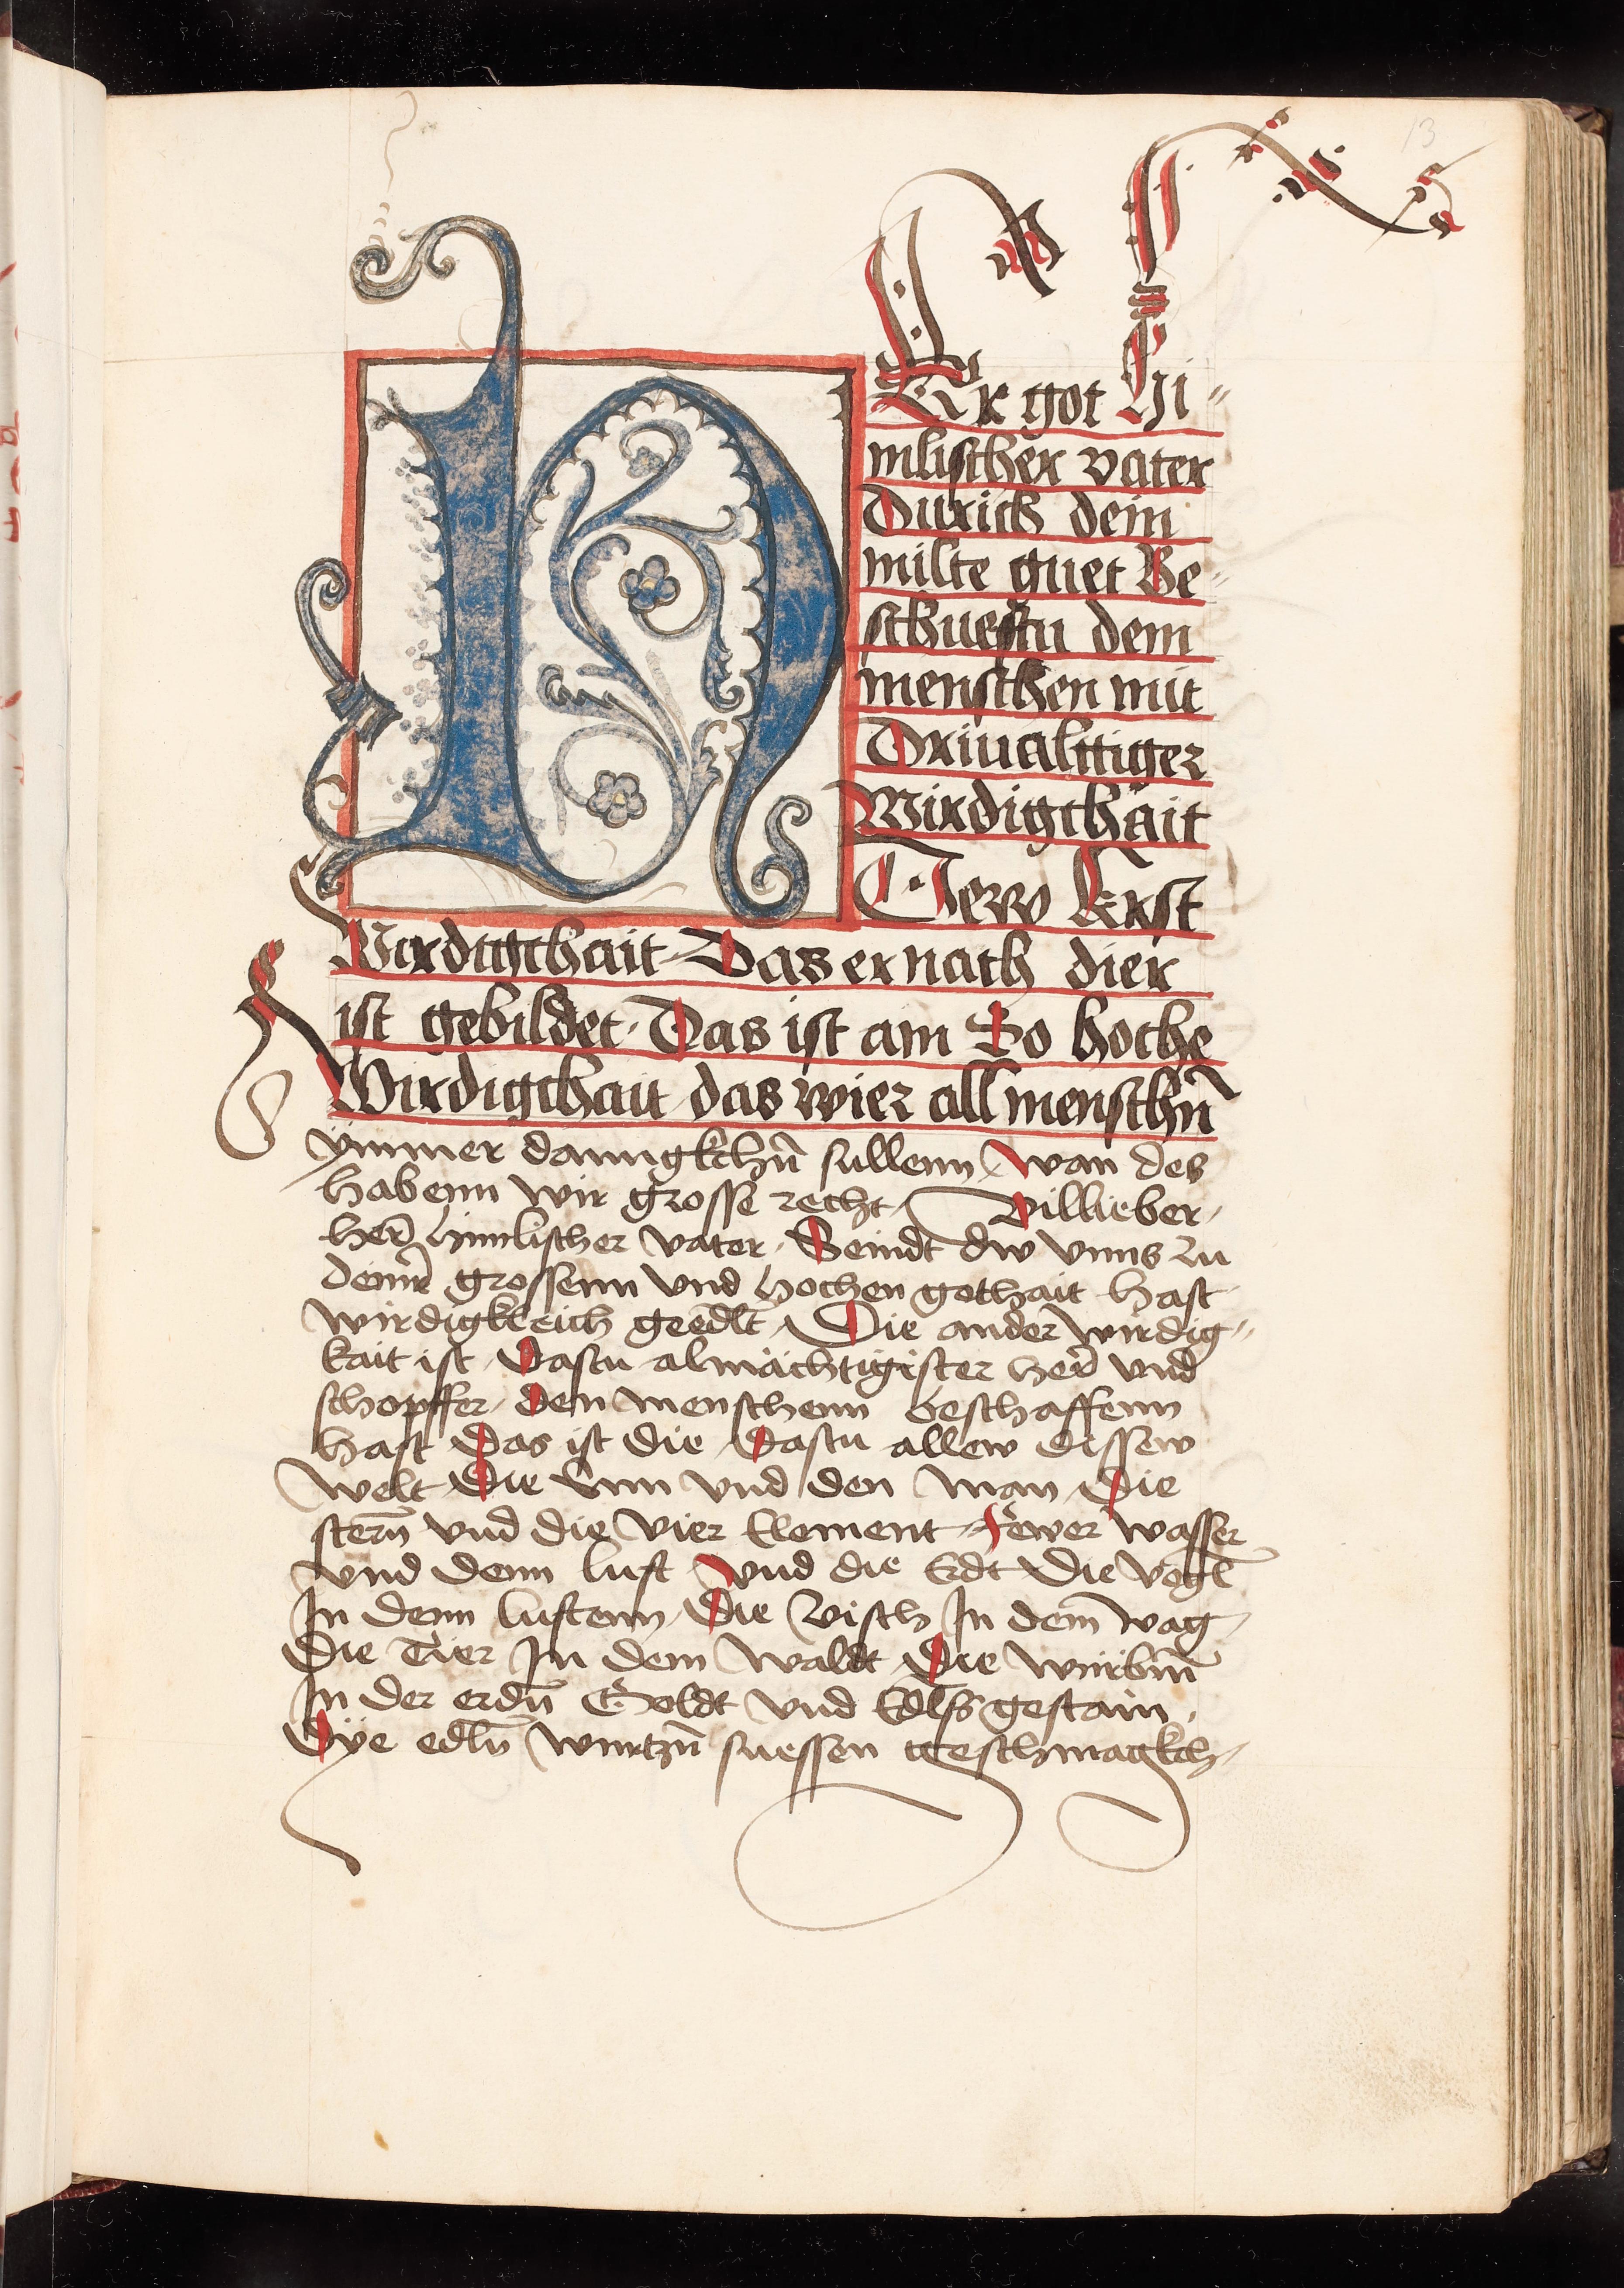 13
HEr got Hi-
mlischer vater
Durich dein
milte guet Be-
schueftu dem
menschen mit
Drivalttiger
Wirdigchait
Dew Erst
Wirdigchait Das er nach dier
ist gebildet Das ist ain So hoche
Wirdigchait das wier all menschn̄
ymmer danngkchn̄ sullenn wan des
habenn wir grosse recht Villieber
her̄ himlischer vater Seindt dw vnns zu
deinr̄ grossenn vnd hochen gothait hast
wirdigkleich geedlt Die ander wirdig-
kait ist Dastu almächtigister her̄ vnd
schopffer den menschenn beschaffenn
hast Das ist die Dastu allew dissew
welt Die Sun vnd den man Die
stern̄ vnd die vier Element Fewer wasser
vnd denn luft vnd die Erdt Die vogl̄
In denn luftenn Die Visch In dem̄ wag
Die Tier In dem waldt Die würbm̄
In der erdn̄ Goldt vnd Edls gestain
Dÿe edln̄ wurtzn̄ suessen geschmagkch